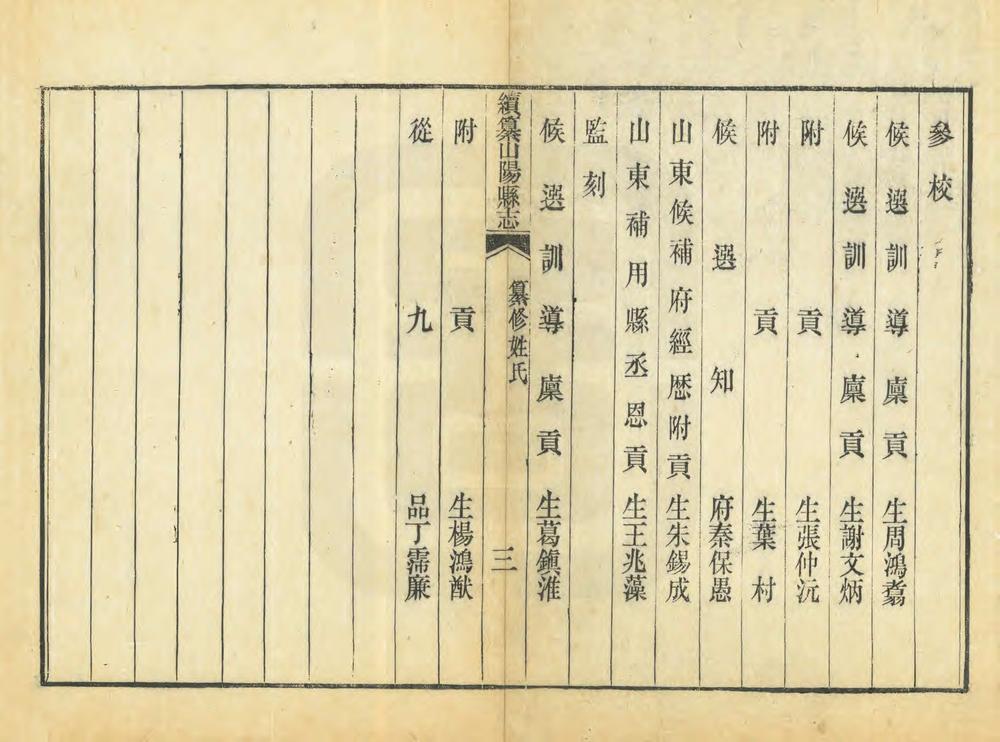 參校
候選訓導廩貢生周鴻翥
候選訓導廩貢生謝文炳
附貢生張仲沅
附貢生葉村
候選知府秦保愚
山東候補府經歷附貢生朱錫成
山東補用縣丞恩貢生王兆藻
監刻
候選訓導廩貢生葛鎮淮
續纂山陽縣志
纂修姓氏
三
附貢生楊鴻猷
從九品丁霈廉